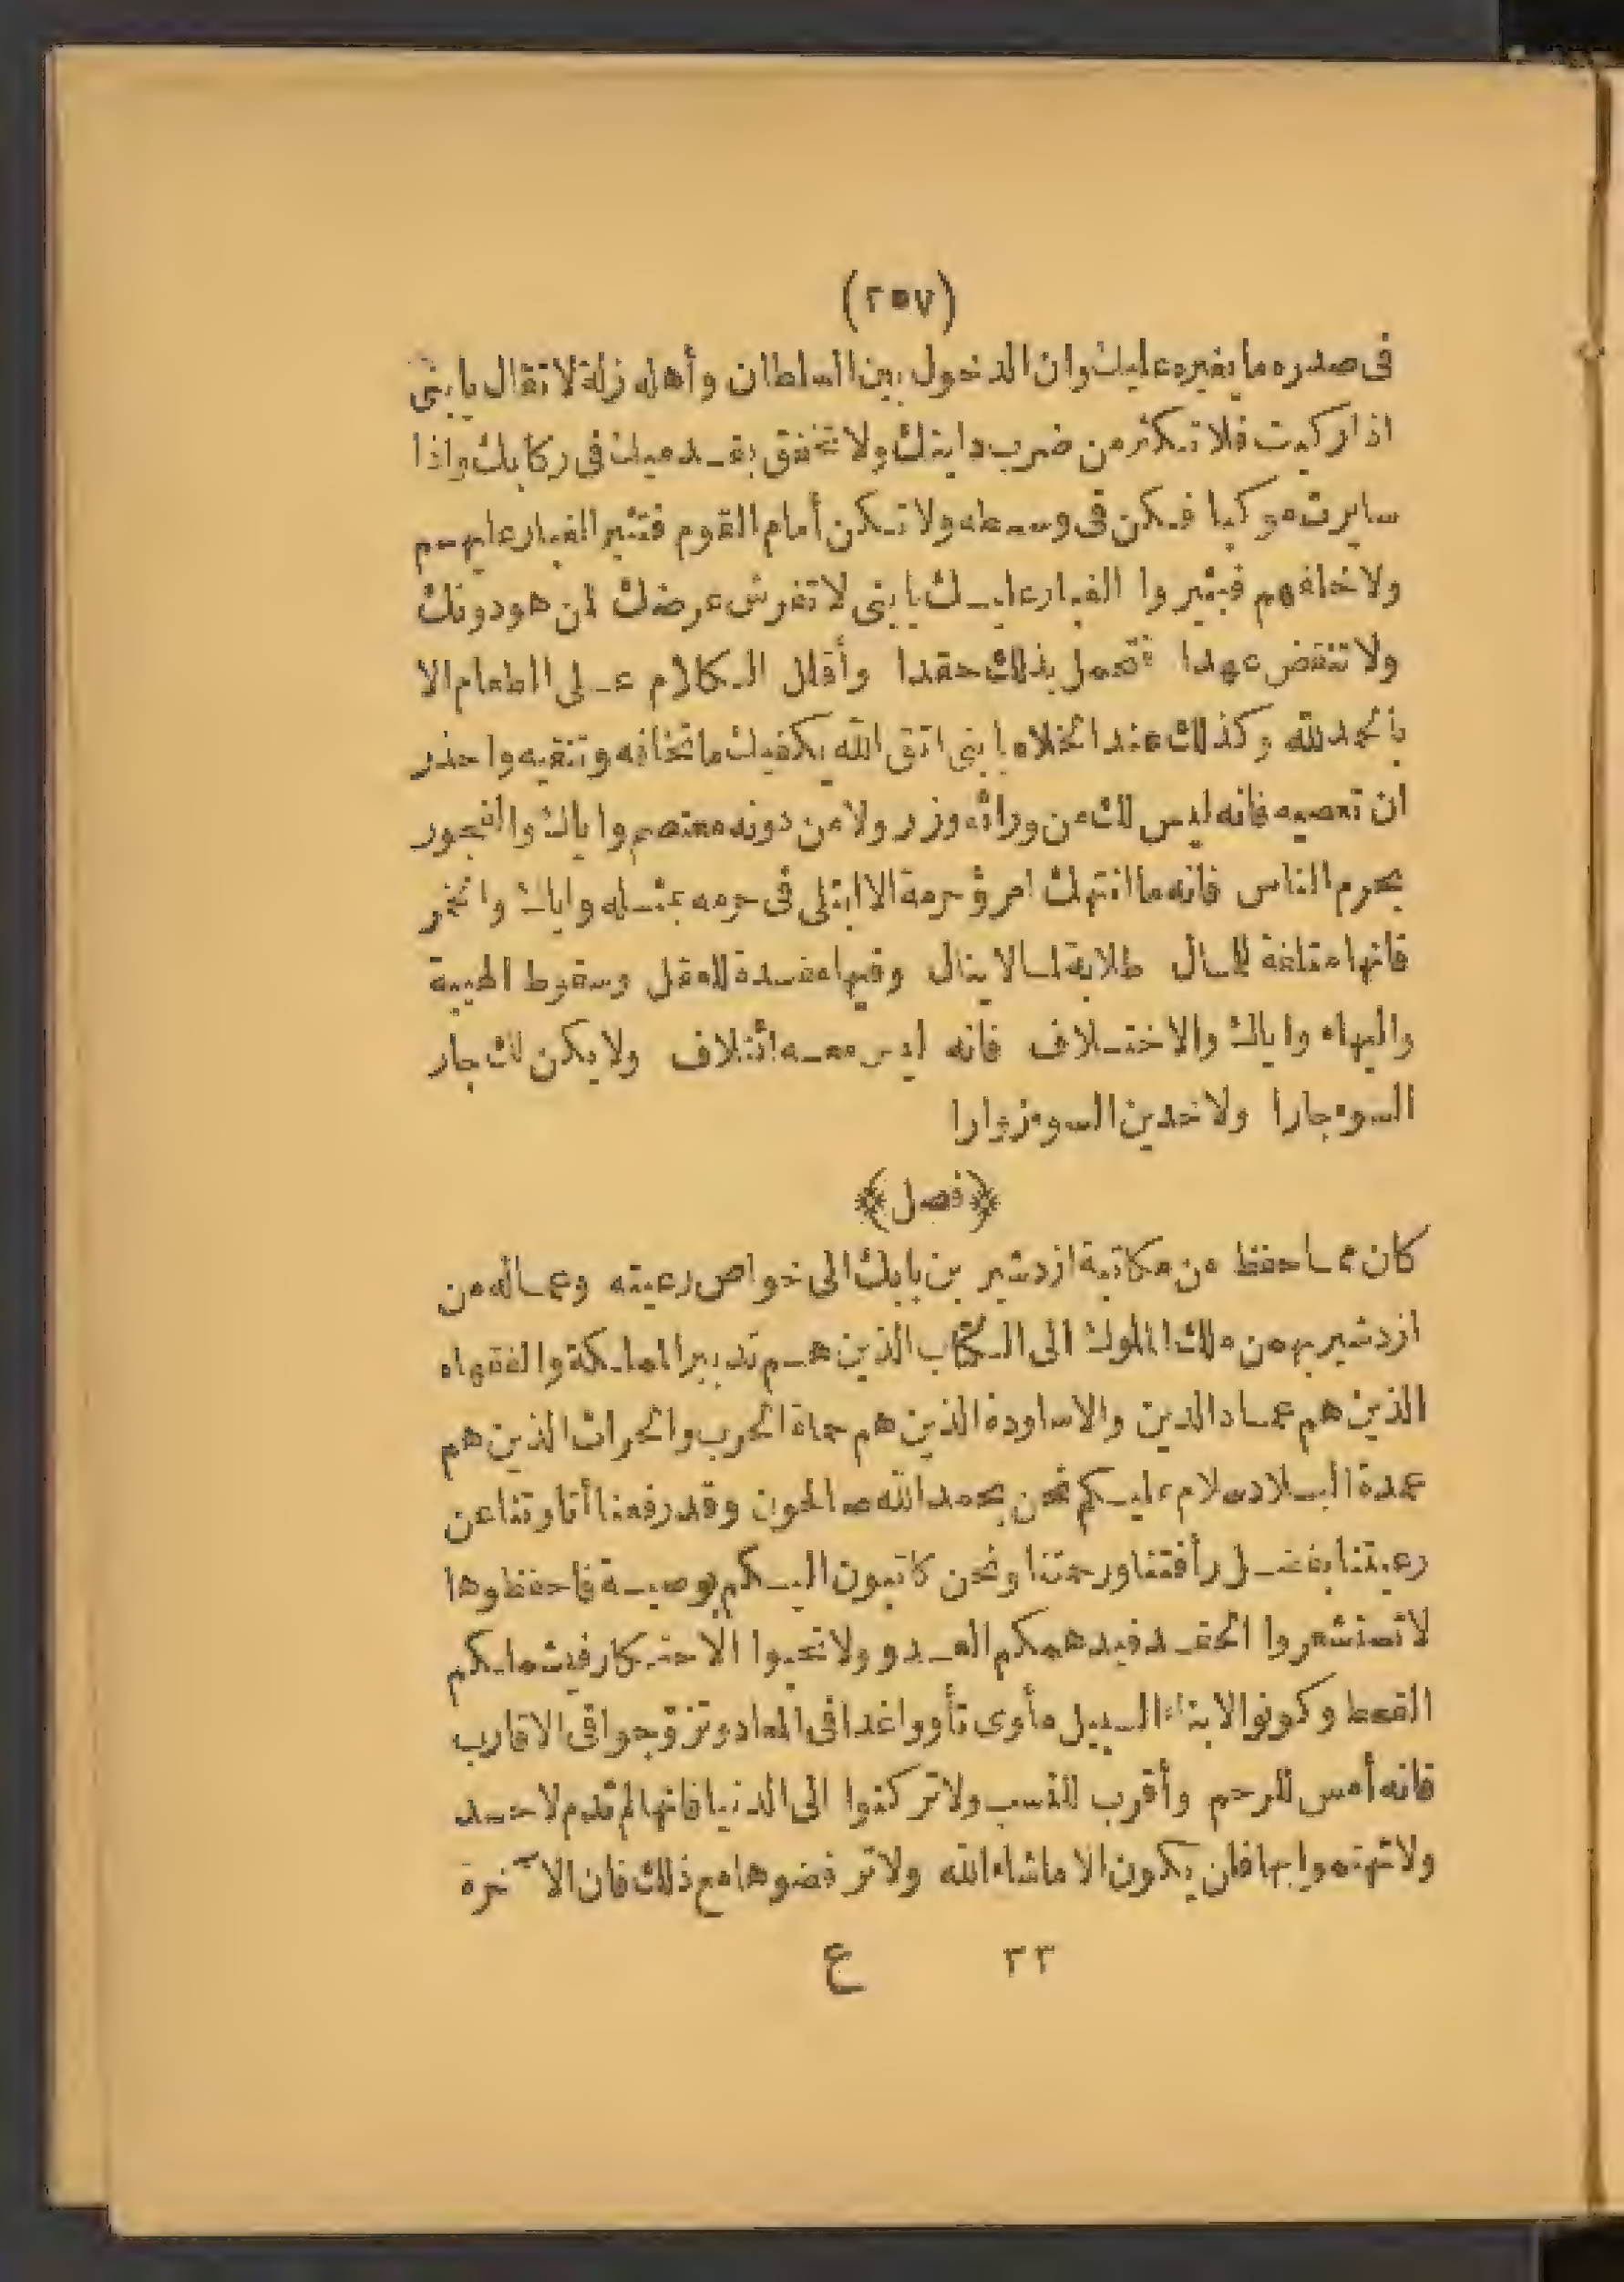 (٢٥٧)
فى صدره ما يغيره عليك وان الدخول بين السلطان وأهله زلة لا تقال يا بنى
اذا ركبت فلا تكثر من ضرب دابتك ولا تخفق بقدميك فى ركابك واذا
سايرت موكبا فكن فى وسطه ولا تكن أمام القوم فتثير الغبار عليهم
ولا خلفهم فيثيروا الغبار عليك يا بنى لا تفرش عرضك لمن هو دونك
ولا تنقض عهدا فتحمل بذلك حقدا وأقلل الكلام على الطعام الا
بالحمد لله وكذلك عند الخلاء يا بنى اتق الله يكفيك ما تخافه وتتقيه واحذر
ان تعصيه فانه ليس لك من ورائه وزر ولا من دونه معتصم واياك والفجور
بحرم الناس فانه ما انتهك امرؤ حرمة الا ابتلى فى حرمه بمثله واياك والخمر
فانها متلفة للمال طلابة لما لا ينال وفيها مفسدة للعقل وسقوط الهيبة
والبهاء واياك والاختلاف فانه ليس معه ائتلاف ولا يكن لك جار
السوء جارا ولا خدين السوء زوارا
﴿فصل﴾
كان مما حفظ من مكاتبة ازدشير بن بابك الى خواص رعيته وعماله من
ازدشير بهمن ملك الملوك الى الكتاب الذين هم تدبير المملكة والفقهاء
الذين هم عماد الدين والاساودة الذين هم حماة الحرب والحراث الذين هم
عمدة البلاد سلام عليكم نحن بحمد الله صالحون وقد رفعنا أتاوتنا عن
رعيتنا بفضل رأفتنا ورحمتنا ونحن كاتبون اليكم بوصية فاحفظوها
لا تستشعروا الحقد فيدهمكم العدو ولا تحبوا الاحتكار فيشملكم
القحط وكونوا لابناء السبيل مأوى تأووا غدا فى المعاد وتزوّجوا فى الاقارب
فانه أمس للرحم وأقرب للنسب ولا تركنوا الى الدنيا فانها لم تدم لاحد
ولا تهتموا بها فلن يكون الا ما شاء الله ولا ترفضوها مع ذلك فان الآخرة
٣٣ ع